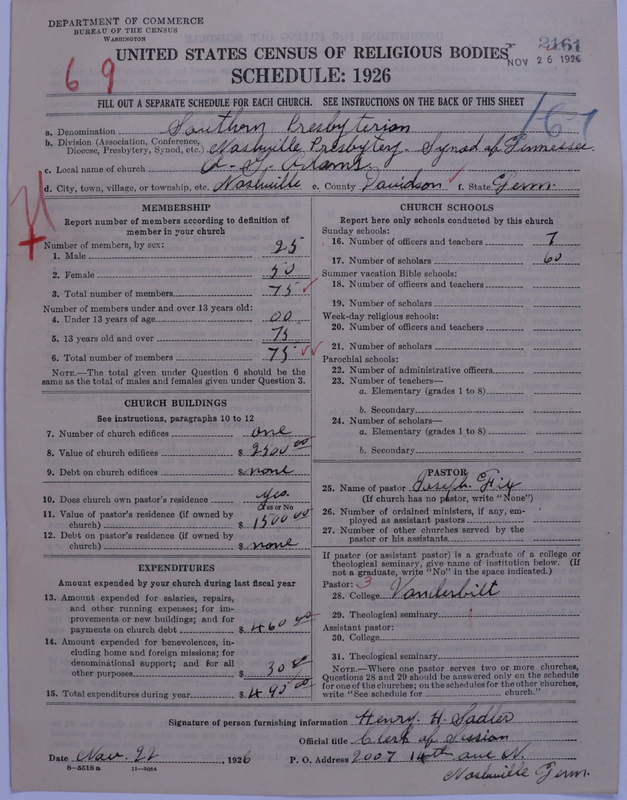 DEPARTMENT OF COMMERCE
BUREAU OF THE CENSUS
WASHINGTON
UNITED STATES CENSUS OF RELIGIOUS BODIES
2161
NOV 26 1926
69
SCHEDULE: 1926
FILL OUT A SEPARATE SCHEDULE FOR EACH CHURCH. SEE INSTRUCTIONS ON THE BACK OF THIS SHEET
a. Denomination Southern Presbyterian
b. Division (Association, Conference, Diocese, Presbytery, Synod, etc.) Nashville Presbytery - Synod of Tennessee.
c. Local name of church A. G. Adams.
d. City, town, village, or township, etc. Nashville e. County Davidson f. State Tenn.
MEMBERSHIP
Report number of members according to definition of member in your church
Number of members, by sex:
1. Male 25
2. Female 50
3. Total number of members 75
Number of members under and over 13 years old:
4. Under 13 years of age 00
5. 13 years old and over 75
6. Total number of members 75
NOTE.—The total given under Question 6 should be the same as the total of males and females given under Question 3.
CHURCH BUILDINGS
See instructions, paragraphs 10 to 12
7. Number of church edifices one
8. Value of church edifices $ 2500 00
9. Debt on church edifices $ none
10. Does church own pastor's residence yes.
(Yes or No)
11. Value of pastor's residence (if owned by church) $ 1500 00
12. Debt on pastor's residence (if owned by church) $ none
EXPENDITURES
Amount expended by your church during last fiscal year
13. Amount expended for salaries, repairs, and other running expenses; for improvements or new buildings; and for payments on church debt $ 460 00
14. Amount expended for benevolences, including home and foreign missions; for denominational support; and for all other purposes $ 30 00
15. Total expenditures during year $ 490 00
CHURCH SCHOOLS
Report here only schools conducted by this church
Sunday schools:
16. Number of officers and teachers 7
17. Number of scholars 60
Summer vacation Bible schools:
18. Number of officers and teachers
19. Number of scholars
Week-day religious schools:
20. Number of officers and teachers
21. Number of scholars
Parochial schools:
22. Number of administrative officers
23. Number of teachers—
a. Elementary (grades 1 to 8)
b. Secondary
24. Number of scholars—
a. Elementary (grades 1 to 8)
b. Secondary
PASTOR
25. Name of pastor Joseph Fix
(If church has no pastor, write "None")
26. Number of ordained ministers, if any, employed as assistant pastors
27. Number of other churches served by the pastor or his assistants
If pastor (or assistant pastor) is a graduate of a college or theological seminary, give name of institution below. (If not a graduate, write "No" in the space indicated.)
Pastor: 3
28. College Vanderbilt
29. Theological seminary
Assistant pastor:
30. College
31. Theological seminary
NOTE.—Where one pastor serves two or more churches, Questions 28 and 29 should be answered only on the schedule for one of the churches; on the schedules for the other churches, write "See schedule for church."
Signature of person furnishing information Henry H. Sadler
Official title Clerk of Session
Date Nov. 22, 1926 P. O. Address 2007 14th ave N.
Nashville Tenn.
8—5518a 11—9054